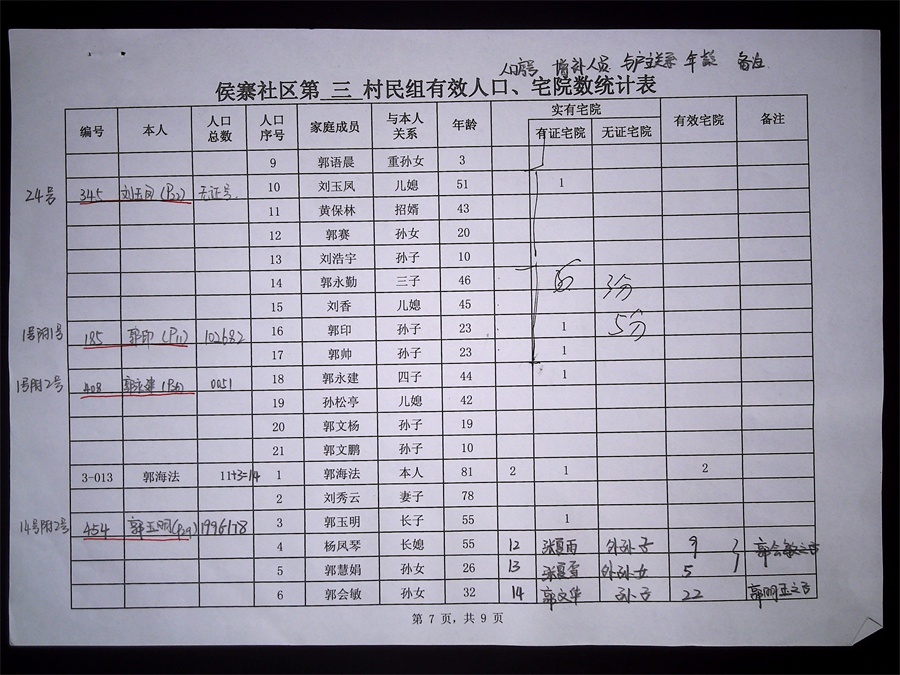 人口序号 增补人员 与户主关系 年龄 备注
侯寨社区第 三 村民组有效人口、宅院数统计表
编号 本人 人口总数 人口序号 家庭成员 与本人关系 年龄 实有宅院 有效宅院 备注
有证宅院 无证宅院
9 郭语晨 重孙女 3
24号 345 刘玉凤(P32) 无证号. 10 刘玉凤 儿媳 51 1
11 黄保林 招婿 43
12 郭赛 孙女 20
13 刘浩宇 孙子 10
14 郭永勤 三子 46 3分
15 刘香 儿媳 45
1号附1号 185 郭印(P11) 102682 16 郭印 孙子 23 1 5分
17 郭帅 孙子 23 1
1号附2号 408 郭永建(P36) 0051 18 郭永建 四子 44 1
19 孙松亭 儿媳 42
20 郭文杨 孙子 19
21 郭文鹏 孙子 10
3-013 郭海法 11+3=14 1 郭海法 本人 81 2 1 2
2 刘秀云 妻子 78
14号附2号 454 郭玉明(P29) 1996178 3 郭玉明 长子 55 1
4 杨凤琴 长媳 55 12 张夏雨 外孙子 9 郭会敏之子
5 郭慧娟 孙女 26 13 张夏雪 外孙女 5
6 郭会敏 孙女 32 14 郭文华 孙子 22 郭明玉之子
第 7 页，共 9 页